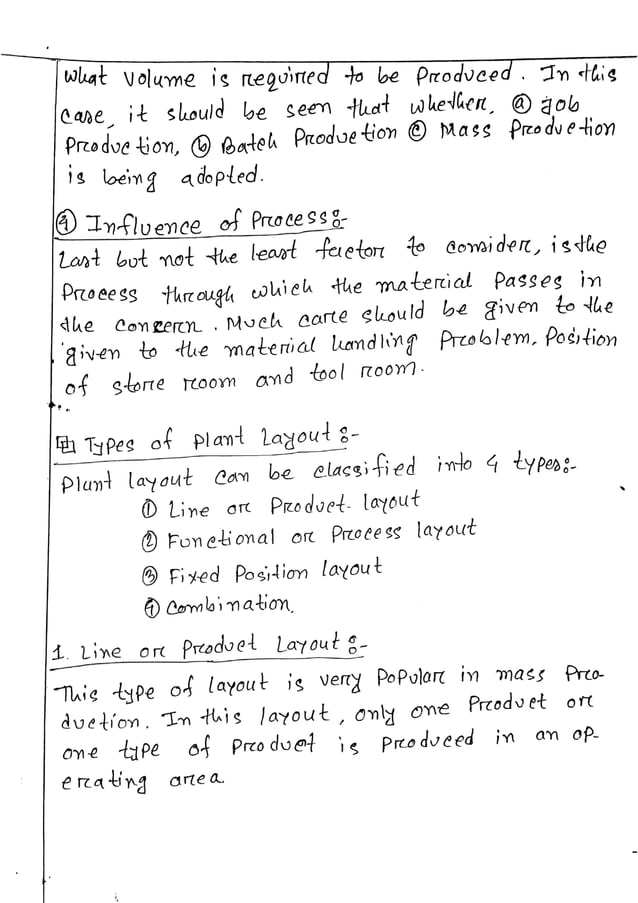 What volume is required to be Produced. In this
case, it should be seen that whether, ⓐ job
Production, ⓑ Batch Production ⓒ Mass Production
is being adopted.
④ Influence of Process:-
Last but not the least factor to consider, is the
Process through which the material Passes in
the concern. Much care should be given to the
given to the material handling Problem, Position
of store room and tool room.
Types of plant Layout :-
Plant layout can be classified into 4 types:-
① Line or Product layout
② Functional or Process layout
③ Fixed Position layout
④ Combination.
1. Line or Product Layout :-
This type of layout is very Popular in mass Pro-
duction. In this layout, only one Product or
one type of Product is Produced in an op-
erating area.